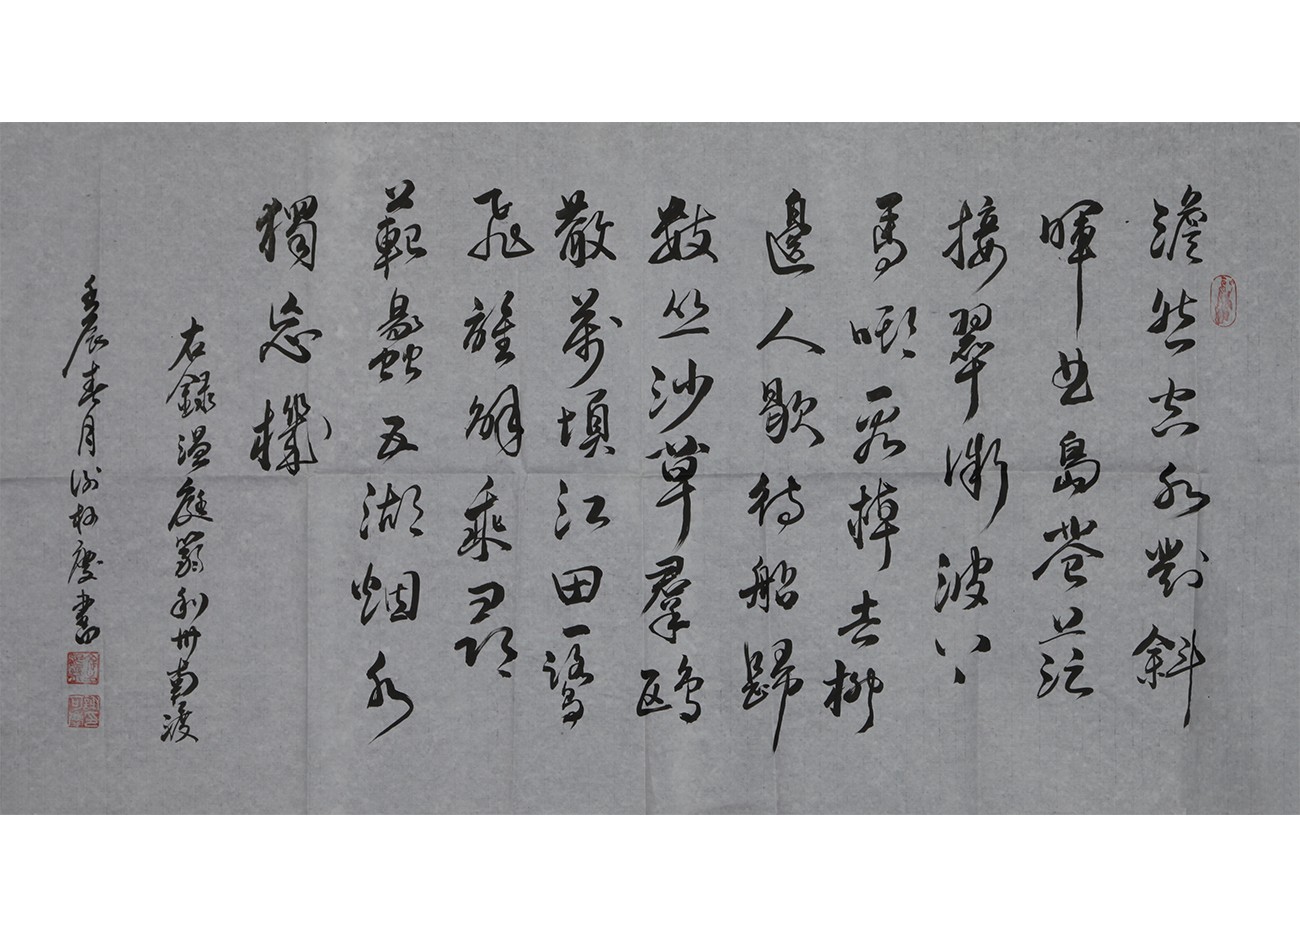 澹然空水對斜
暉曲島蒼茫
接翠微波上
馬嘶看棹去柳
邊人歇待船歸
數丛沙草羣鷗
散萬頃江田一鷺
飛誰解乘舟尋
範蠡五湖烟水
獨忘機
右録温庭筠利州南渡
壬辰春月書